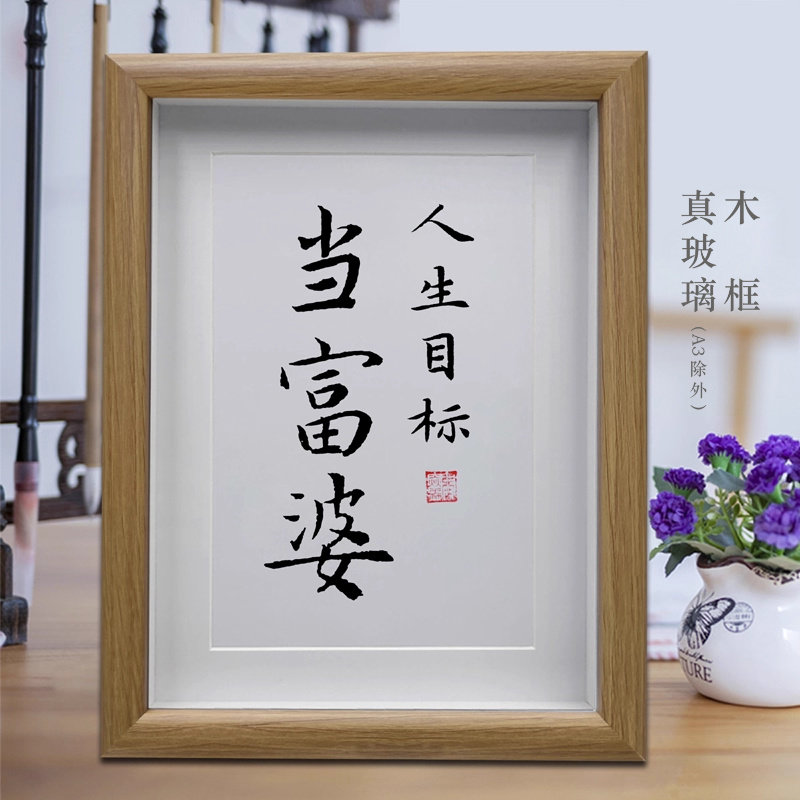 人生目标
当富婆
木框
真玻璃(A3除外)
TURE